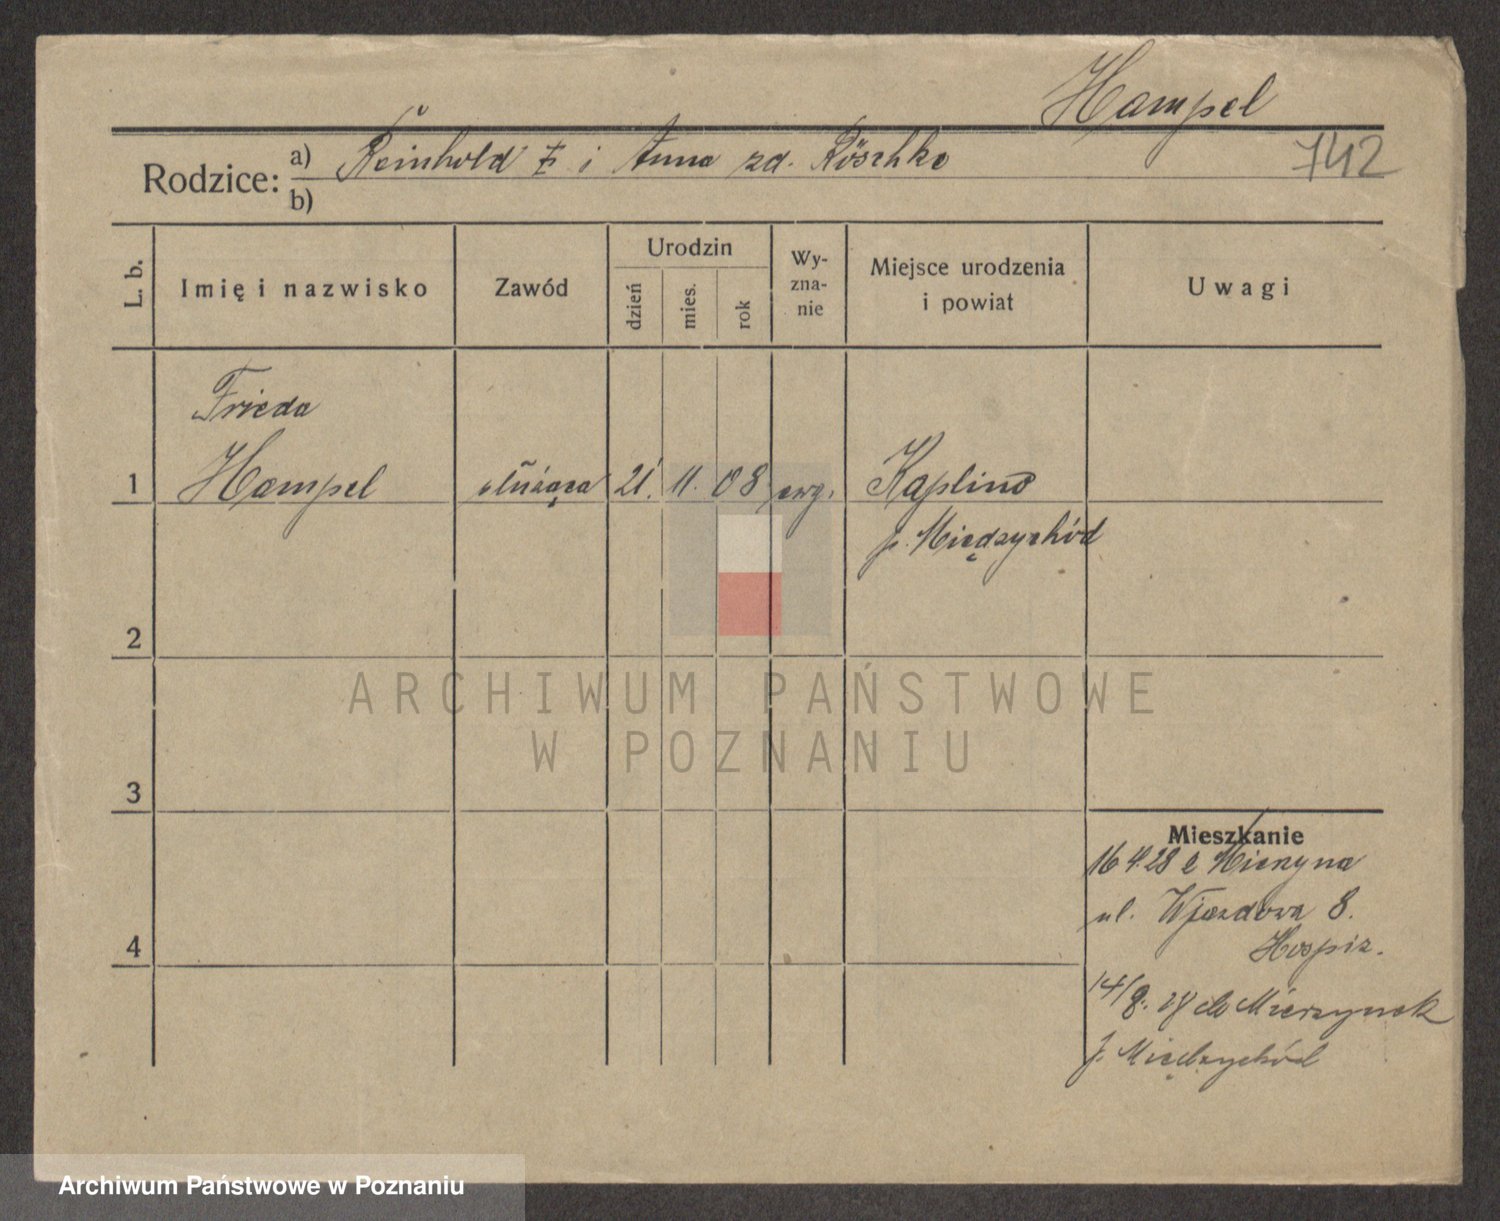 Hampel
742
Rodzice: a) Reinhold i Anna zd. Röschke
b)
L. b.
Imię i nazwisko
Zawód
Urodzin
dzień
mies.
rok
Wy-
zna-
nie
Miejsce urodzenia
i powiat
Uwagi
Frieda
1 Hampel służąca 21. 11. 08 ewg. Kaplino
p. Międzychód
2
3
4
Mieszkanie
16 4.28 z Mierzyna
ul. Wjazdowa 8.
Hospiz.
14/8. 28 do Mierzynek
p. Międzychód
ARCHIWUM PAŃSTWOWE
W POZNANIU
Archiwum Państwowe w Poznaniu